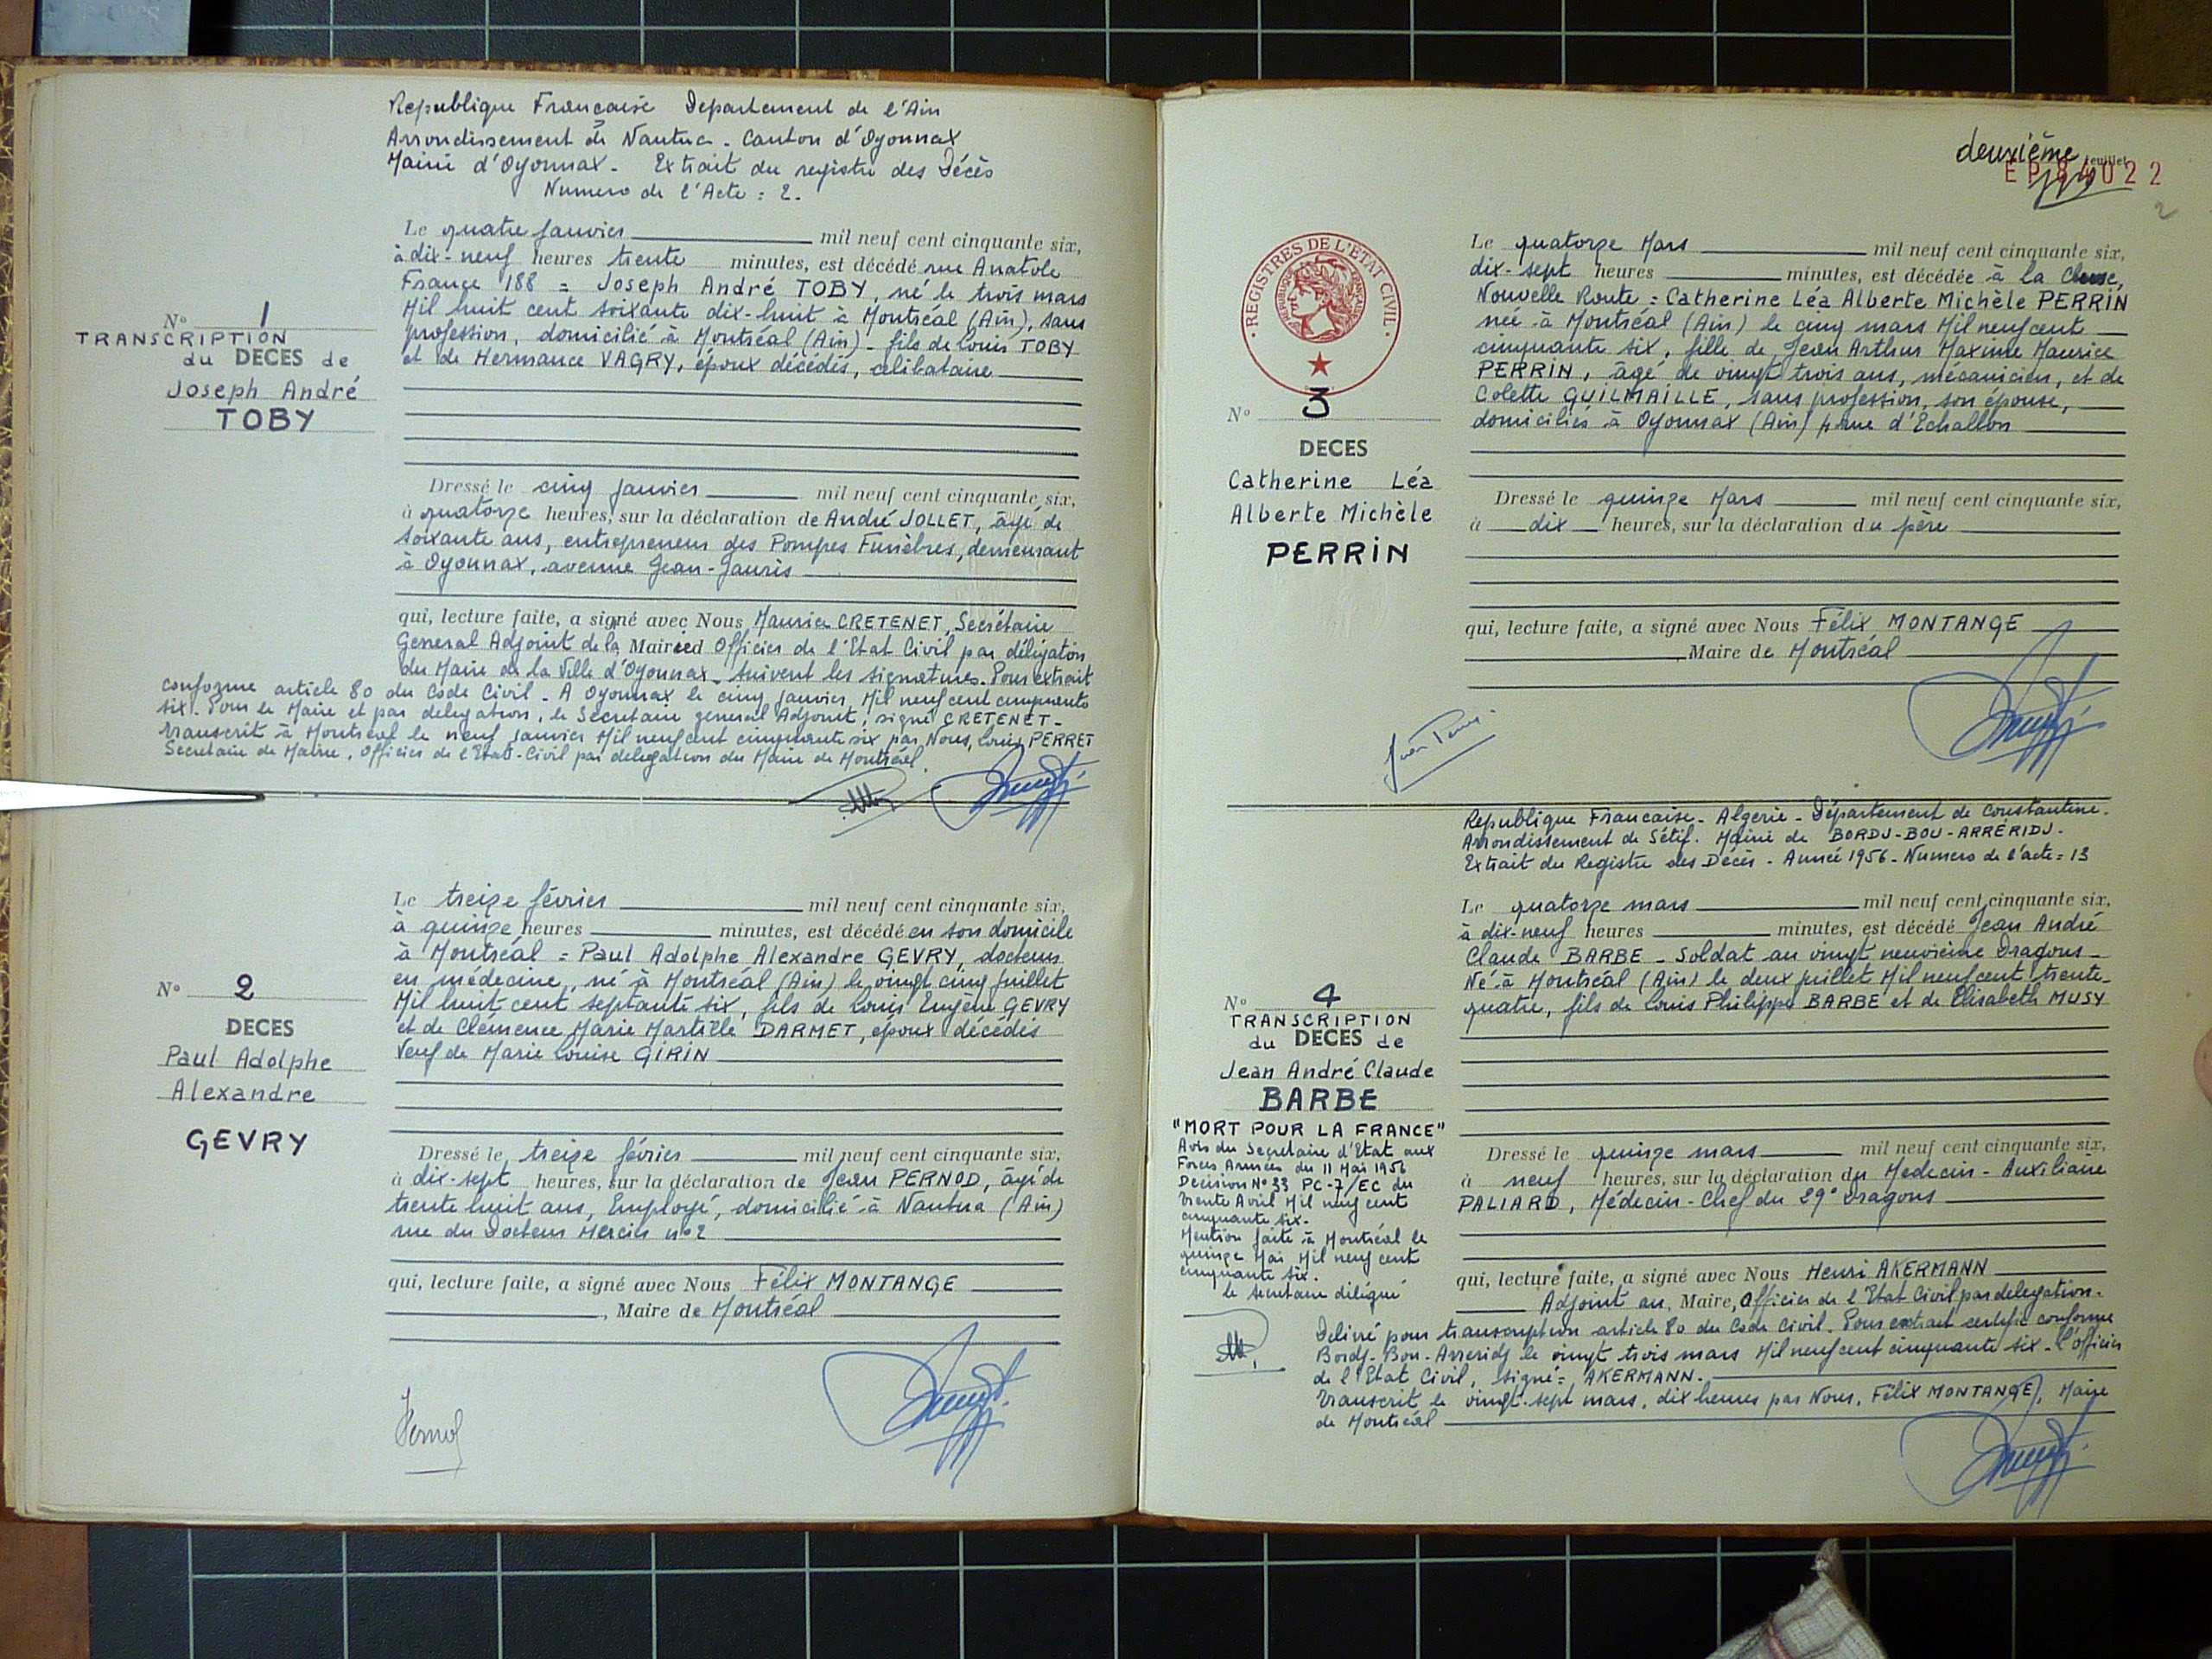 Republique Francaise Departement de l'Ain
Arrondissement de Nantua - Canton d'Oyonnax
Mairie d'Oyonnax - Extrait du registre des Décès
Numero de l'Acte : 2.
Le quatre Janvier mil neuf cent cinquante six,
à dix-neuf heures trente minutes, est décédé rue Anatole
France 188 = Joseph André TOBY, né le trois mars
Mil huit cent soixante dix-huit à Montréal (Ain), sans
profession, domicilié à Montréal (Ain) - fils de Louis TOBY
et de Hermance VAGRY, époux décédés, célibataire
N° 1
TRANSCRIPTION
du DECES de
Joseph André
TOBY
Dressé le cinq Janvier mil neuf cent cinquante six,
à quatorze heures, sur la déclaration de André JOLLET, âgé de
soixante ans, entrepreneur des Pompes Funèbres, demeurant
à Oyonnax, avenue Jean-Jaurès
qui, lecture faite, a signé avec Nous Maurice CRETENET, Secrétaire
General Adjoint de la Mairie Officier de l'Etat Civil par délégation
du Maire de la Ville d'Oyonnax - suivent les signatures. Pour extrait
conforme article 80 du Code Civil - A Oyonnax le cinq janvier Mil neuf cent cinquante
six. Pour le Maire et par delegation, le Secretaire general Adjoint, signé CRETENET -
Transcrit à Montréal le neuf janvier Mil neuf cent cinquante six par Nous, Louis PERRET
Secretaire de Mairie, Officier de l'Etat-Civil par delegation du Maire de Montréal.
Le treize février mil neuf cent cinquante six,
à quinze heures minutes, est décédé en son domicile
à Montréal = Paul Adolphe Alexandre GEVRY, docteur
en médecine, né à Montréal (Ain) le vingt cinq juillet
Mil huit cent septante six, fils de Louis Eugène GEVRY
et de Clémence Marie Martille DARMET, époux décédés
Veuf de Marie Louise GIRIN
N° 2
DECES
Paul Adolphe
Alexandre
GEVRY
Dressé le treize février mil neuf cent cinquante six,
à dix-sept heures, sur la déclaration de Jean PERNOD, âgé de
trente huit ans, Employé, domicilié à Nantua (Ain)
rue du Docteur Mercier n°2
qui, lecture faite, a signé avec Nous Félix MONTANGE
, Maire de Montréal
deuxième feuillet
EP 84022
2
REGISTRES DE L'ETAT CIVIL
Le quatorze Mars mil neuf cent cinquante six,
dix-sept heures minutes, est décédée à la Cluse,
Nouvelle Route = Catherine Léa Alberte Michèle PERRIN
née à Montréal (Ain) le cinq mars Mil neuf cent
cinquante six, fille de Jean Arthur Maxime Maurice
PERRIN, âgé de vingt trois ans, mécanicien, et de
Colette GUILMAILLE, sans profession, son épouse,
domiciliés à Oyonnax (Ain) 4 rue d'Echallon
N° 3
DECES
Catherine Léa
Alberte Michèle
PERRIN
Dressé le quinze Mars mil neuf cent cinquante six,
à dix heures, sur la déclaration du père
qui, lecture faite, a signé avec Nous Félix MONTANGE
Maire de Montréal
Republique Francaise - Algerie - Département de Constantine.
Arrondissement de Sétif. Mairie de BORDJ-BOU-ARRÉRIDJ.
Extrait du Registre des Décès - Année 1956 - Numero de l'acte = 13
Le quatorze mars mil neuf cent cinquante six,
à dix-neuf heures minutes, est décédé Jean André
Claude BARBE - Soldat au vingt neuvième Dragons -
Né à Montréal (Ain) le deux juillet Mil neuf cent trente
quatre, fils de Louis Philippe BARBE et de Elisabeth MUSY
N° 4
TRANSCRIPTION
du DECES de
Jean André Claude
BARBE
"MORT POUR LA FRANCE"
Avis du Secretaire d'Etat aux
Forces Armées du 11 Mai 1956
Decision N° 33 PC-7/EC du
trente Avril Mil neuf cent
cinquante six.
Mention faite à Montréal le
quinze Mai Mil neuf cent
cinquante six.
le secretaire délégué
Dressé le quinze mars mil neuf cent cinquante six,
à neuf heures, sur la déclaration du Medecin-Auxiliaire
PALIARD, Médecin-Chef du 29° Dragons
qui, lecture faite, a signé avec Nous Henri AKERMANN
Adjoint au Maire, Officier de l'Etat Civil par delegation.
Delivré pour transcription article 80 du Code Civil. Pour extrait certifié conforme
Bordj-Bou-Arreridj le vingt trois mars Mil neuf cent cinquante six - l'officier
de l'Etat Civil, signé = AKERMANN.
Transcrit le vingt-sept mars, dix heures par Nous, Félix MONTANGE, Maire
de Montréal